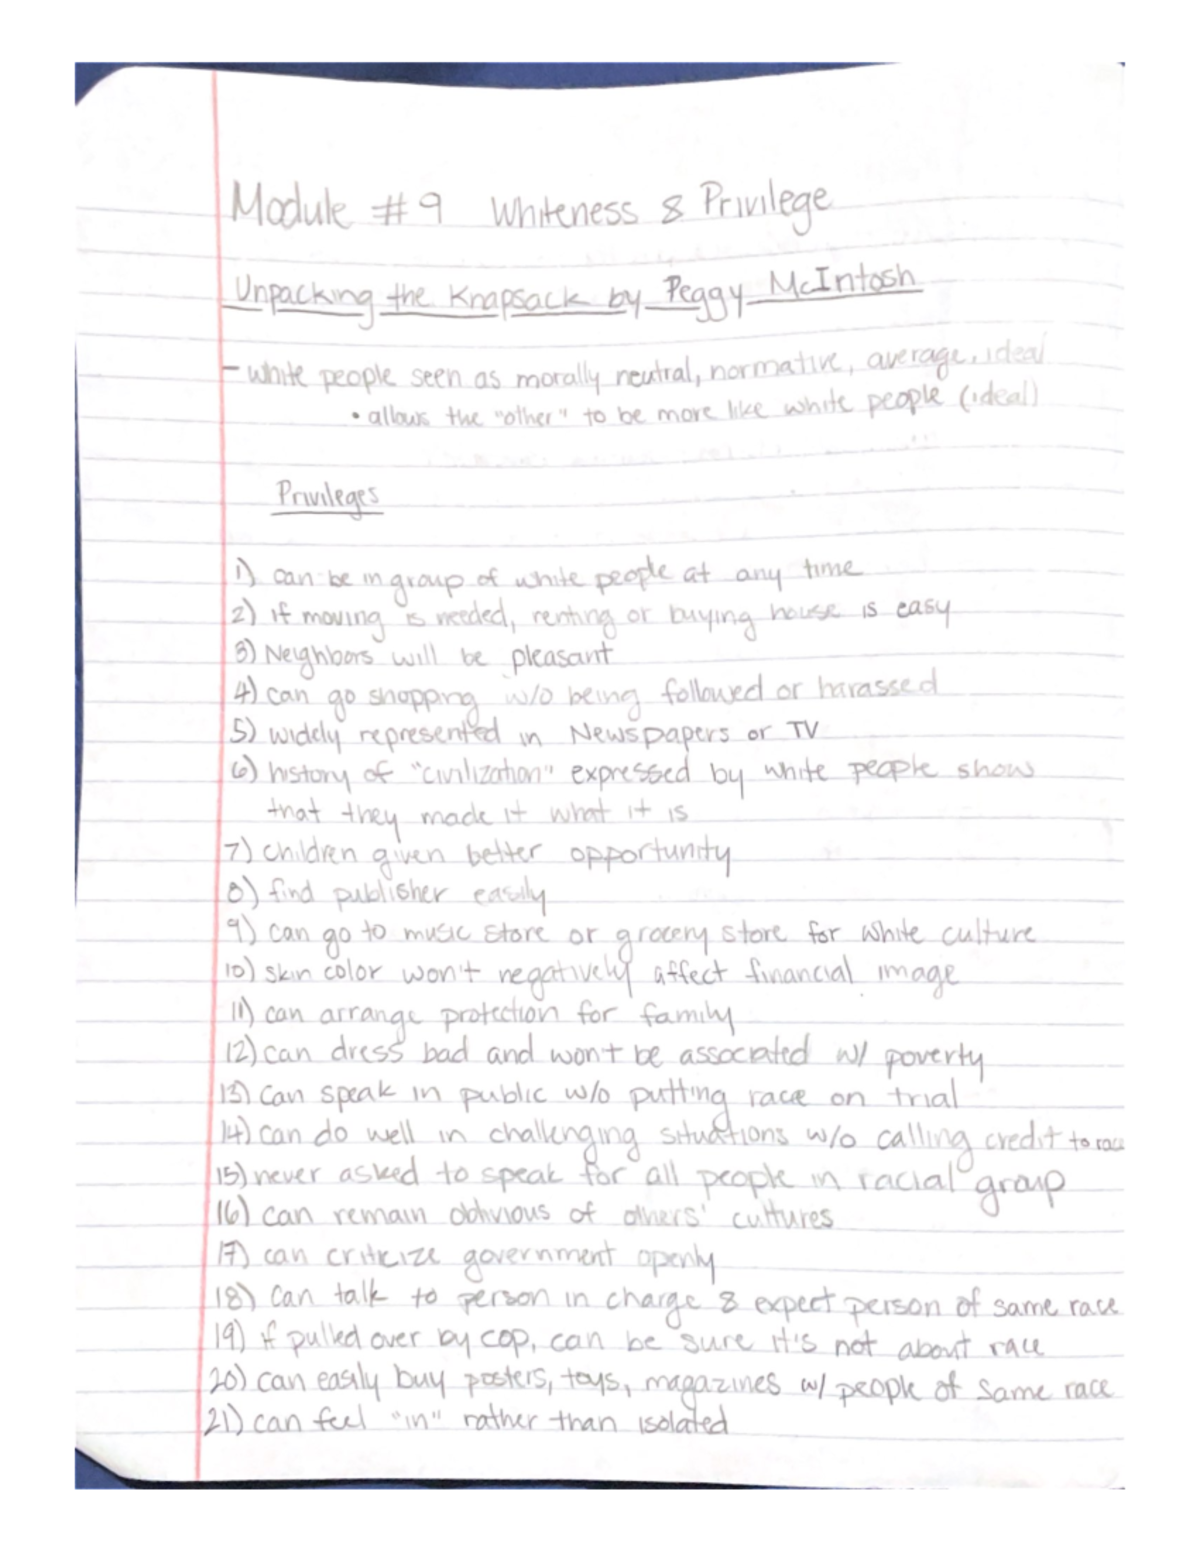 Module #9 Whiteness & Privilege
Unpacking the Knapsack by Peggy McIntosh
- white people seen as morally neutral, normative, average, ideal
• allows the "other" to be more like white people (ideal)
Privileges
1) can be in group of white people at any time
2) if moving is needed, renting or buying house is easy
3) Neighbors will be pleasant
4) can go shopping w/o being followed or harassed
5) widely represented in Newspapers or TV
6) history of "civilization" expressed by white people show
that they made it what it is
7) children given better opportunity
8) find publisher easily
9) can go to music store or grocery store for white culture
10) skin color won't negatively affect financial image
11) can arrange protection for family
12) can dress bad and won't be associated w/ poverty
13) can speak in public w/o putting race on trial
14) can do well in challenging situations w/o calling credit to race
15) never asked to speak for all people in racial group
16) can remain oblivious of others' cultures
17) can criticize government openly
18) can talk to person in charge & expect person of same race
19) if pulled over by cop, can be sure it's not about race
20) can easily buy posters, toys, magazines w/ people of same race
21) can feel "in" rather than isolated